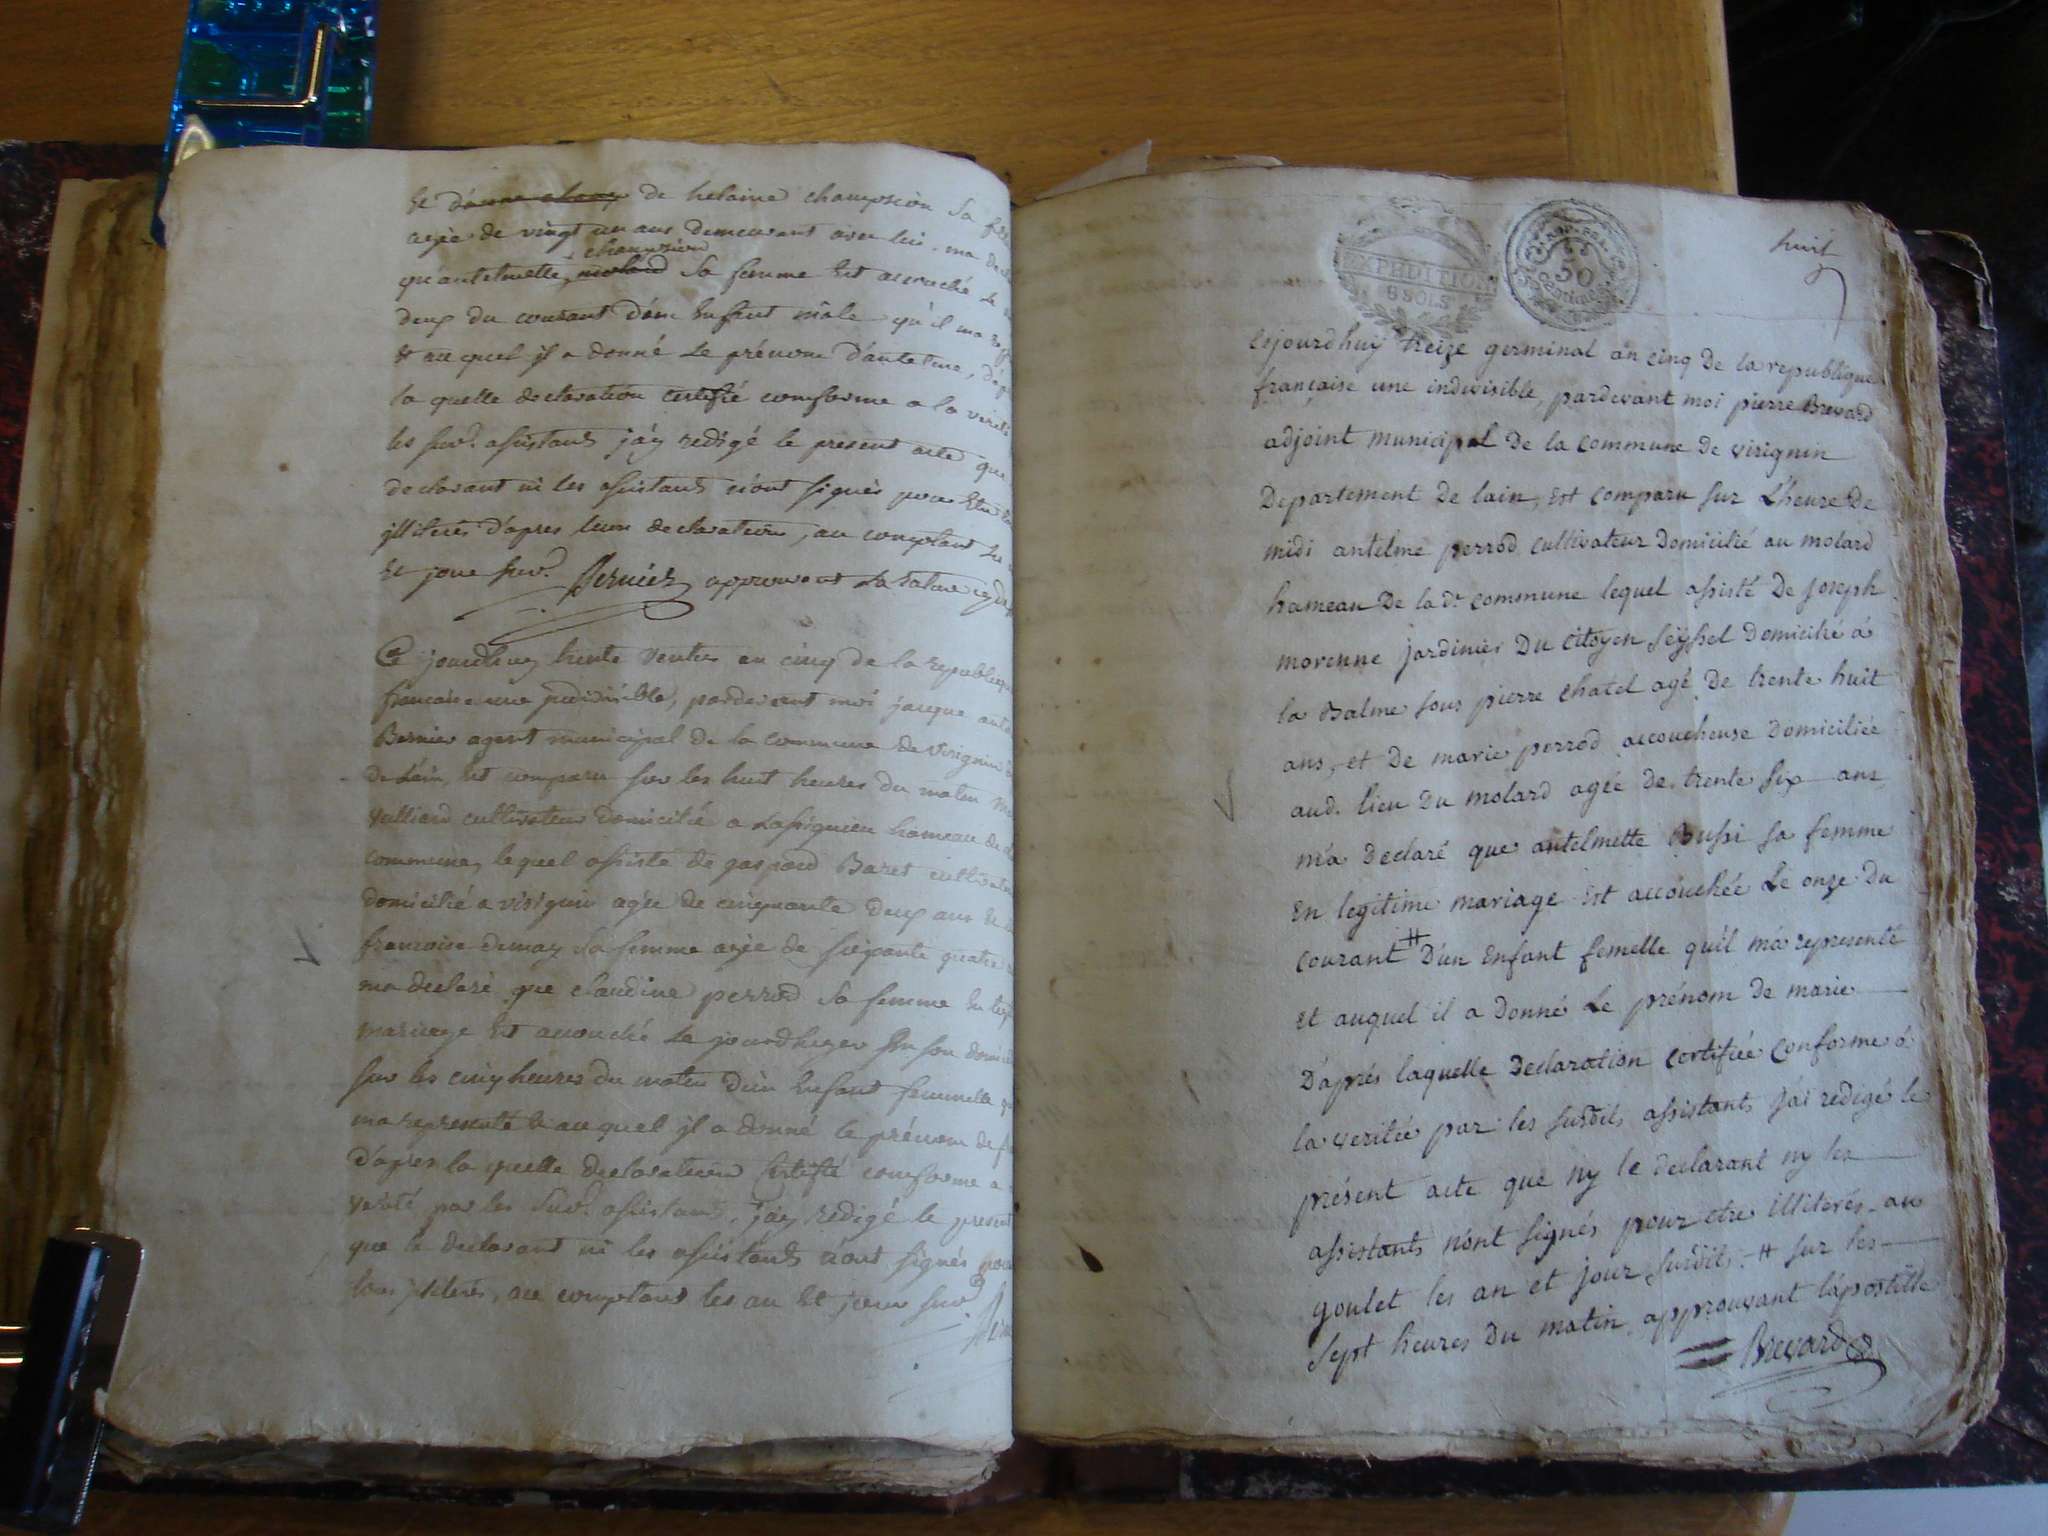 de helaine champion sa
agée de vingt un ans demeurant avec lui, ma
champion
qu'antelmette molard sa femme est accouché le
deux du courant d'un enfant mâle qu'il ma
et auquel jl a donné le prénom d'antelme,
la quelle declaration certifié conforme a la verité
les susd. assistants j'ay redigé le present acte que
declarant ni les assistants n'ont signés pour etre
jlliterés d'apres leur declaration, au comptant les
et jour susd. Bernier approuvant la rature
Ce jourdhuy trente ventos an cinq de la republique
francaise une jndivisible, pardevant moi jacque
Bernier agent municipal de la commune de virignin
de Lain, est comparu sur les huit heures du matin
vulliard cultivateur domicilié a Lassignieu hameau de
commune, lequel assisté de gaspard Baret cultivateur
domicilié a virignin agée de cinquante deux ans et de
francoise demay sa femme agée de soixante quatre
ma declaré que claudine perrod sa femme en
mariage est accouché le jourdhuy en son
sur les cinq heures du matin d'un enfant femmelle
ma representé et auquel jl a donné le prénom de
d'apres la quelle declaration certifié conforme a
verité par les susd. assistants, j'ay redigé le present
que le declarant ni les assistants n'ont signés
jlliterés, au comptant les an et jour susd.
huit
EXPEDITION
8 SOLS
50
Cejourdhuy treize germinal an cinq de la republique
française une indivisible, pardevant moi pierre Brevard
adjoint municipal de la commune de virignin
Departement de lain, est comparu sur L'heure de
midi antelme perrod cultivateur domicilié au molard
hameau de la d.e commune lequel assisté de joseph
morenne jardinier du citoyen seÿssel domicilié á
la Balme sous pierre chatel agé de trente huit
ans, et de marie perrod accoucheuse domiciliée
aud. lieu du molard agée de trente six ans
m'a declaré que antelmette Bussi sa femme
en legitime mariage est accouchée le onze du
courant # d'un enfant femelle qu'il m'a representé
et auquel il a donné le prénom de marie
D'aprés laquelle declaration certifiée conforme á
la veritée par les susdits assistants j'ai redigé le
présent acte que ny le declarant ny les
assistants n'ont signés pour etre illiterés au
goulet les an et jour susdits # sur les
sept heures du matin approuvant l'apostille
Brevard